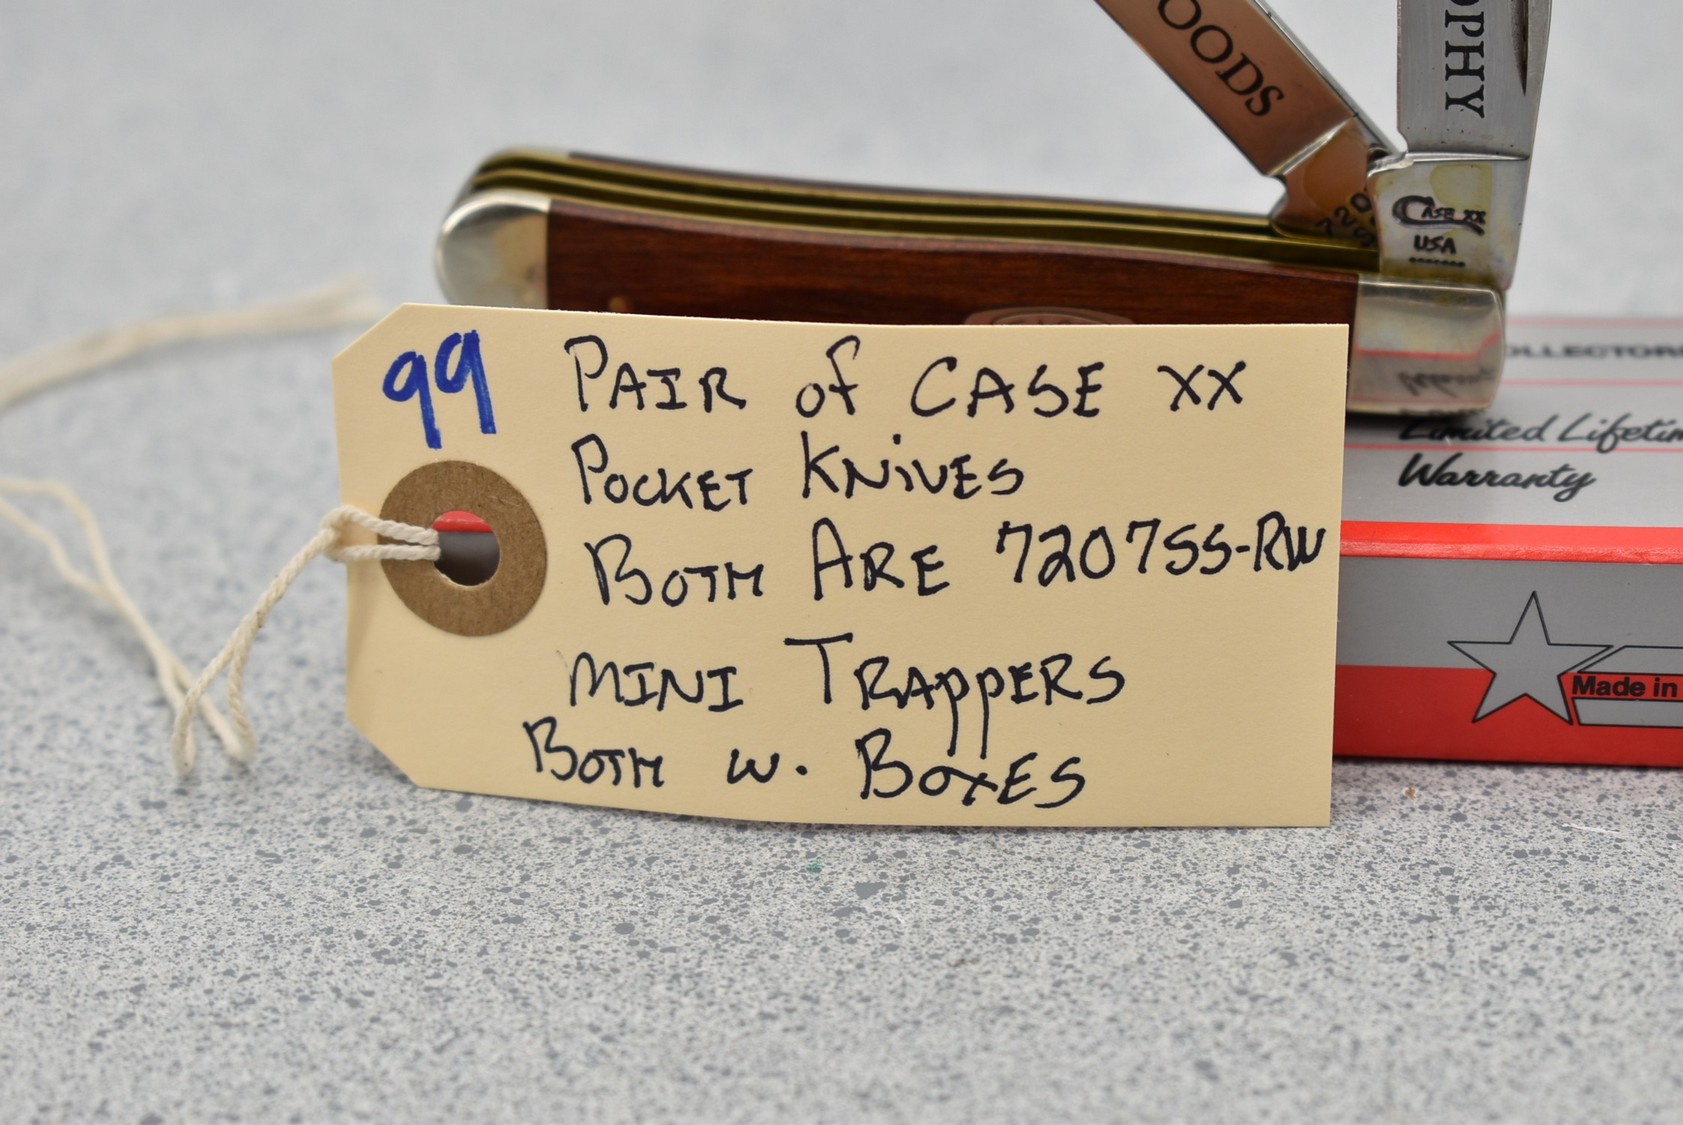 OODS
OPHY
CASE XX
USA
99
PAIR of CASE XX
POCKET KNIVES
BOTH ARE 7207SS-RW
MINI TRAPPERS
BOTH W. BOXES
OLLECTOR
Limited Lifetim
Warranty
Made in